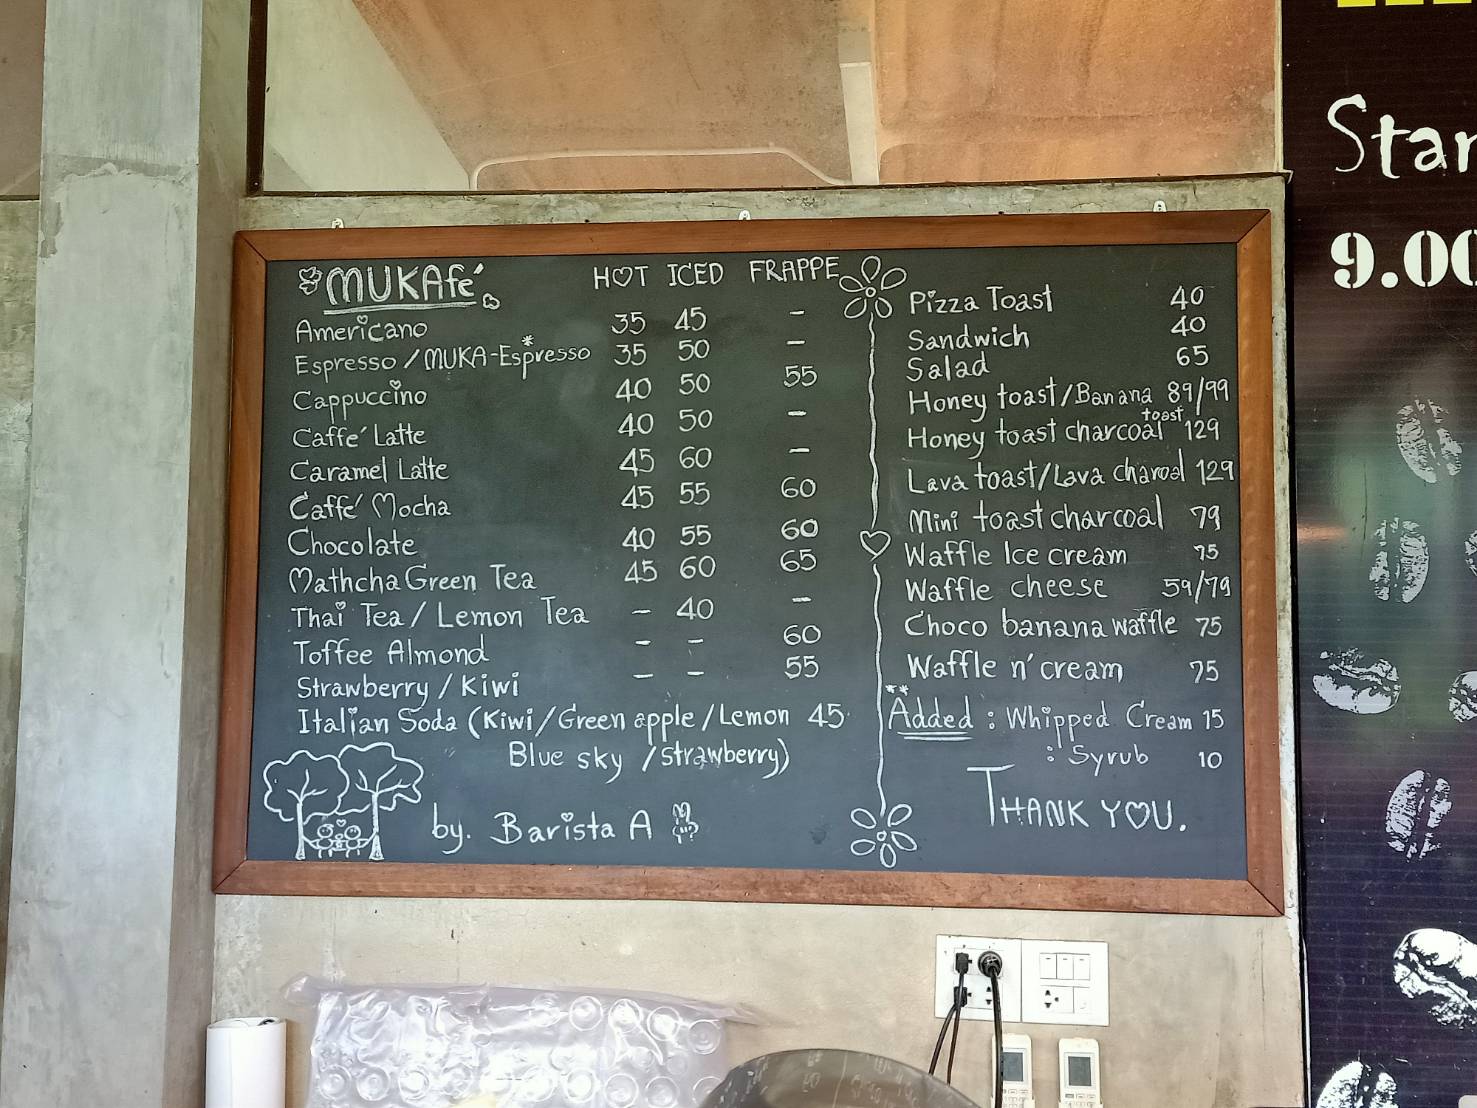 MUKAfé HOT ICED FRAPPE
Americano 35 45 -
Espresso / MUKA-Espresso 35 50 -
Cappuccino 40 50 55
Caffe' Latte 40 50 -
Caramel Latte 45 60 -
Caffe' Mocha 45 55 60
Chocolate 40 55 60
Mathcha Green Tea 45 60 65
Thai Tea / Lemon Tea - 40 -
Toffee Almond - - 60
Strawberry / Kiwi - - 55
Italian Soda (Kiwi / Green apple / Lemon 45
Blue sky / Strawberry)
by. Barista A
Pizza Toast 40
Sandwich 40
Salad 65
Honey toast / Banana toast 89/99
Honey toast charcoal 129
Lava toast / Lava charoal 129
Mini toast charcoal 79
Waffle Ice cream 75
Waffle cheese 59/79
Choco banana waffle 75
Waffle n' cream 75
** Added : Whipped Cream 15
: Syrub 10
THANK YOU.
Star
9.00